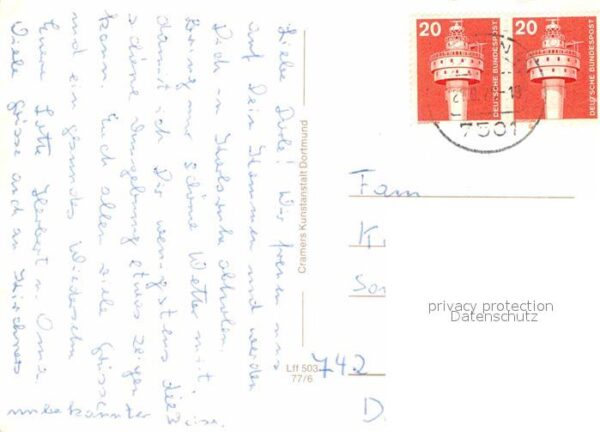 Liebe Dirle! Wir freuen uns
auf Dein Kommen und werden
Dich in Karlsruhe abholen.
Bring nur schöne Wetter mit,
damit ich Dir wenigstens die
schöne Umgebung etwas zeigen
kann. Euch allen viele Grüsse
und ein gesundes Wiedersehn
Eure Lotte Herbert u. Oma
Viele Grüsse auch an Kirchners
unbekannter
Cramers Kunstanstalt Dortmund
Lff 503
77/6
20
DEUTSCHE BUNDESPOST
20
DEUTSCHE BUNDESPOST
7501
Fam
K
742
D.
privacy protection
Datenschutz